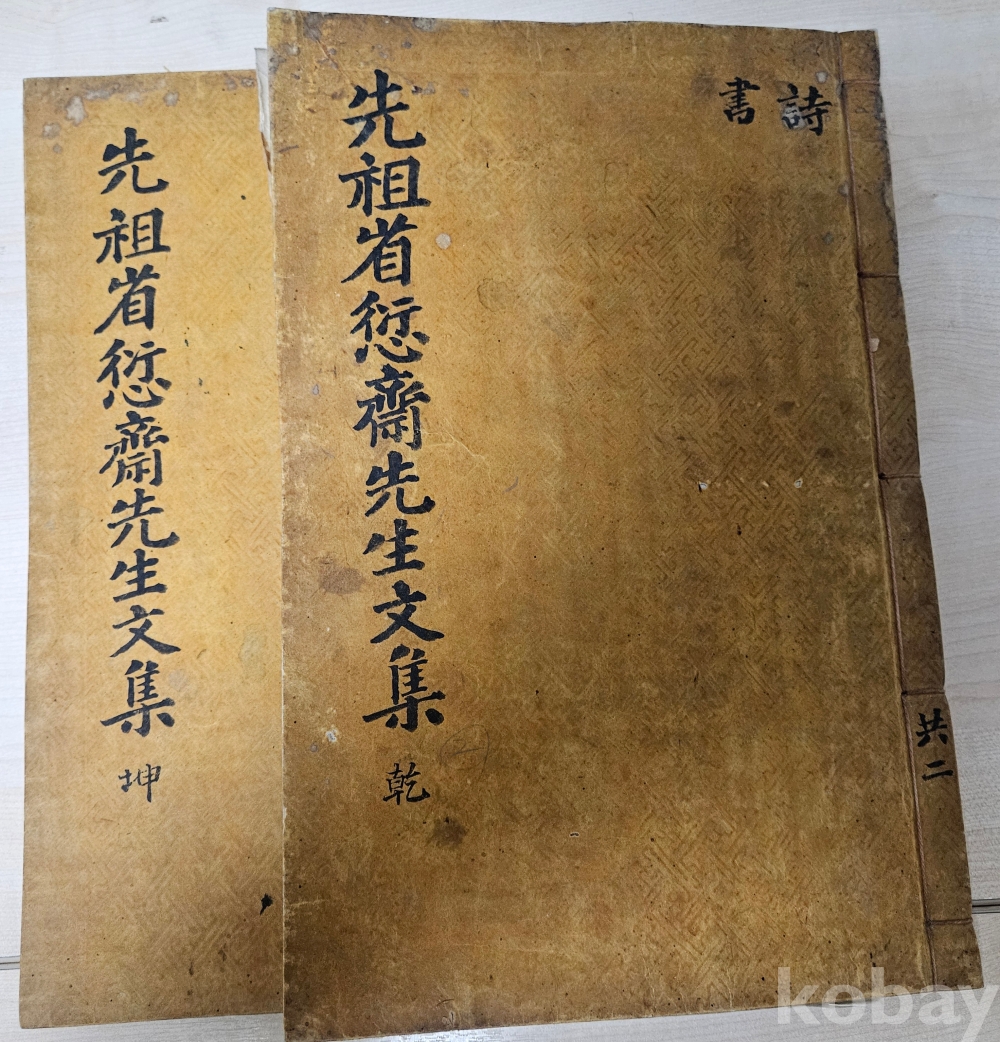 詩
書
先祖省愆齋先生文集 乾
共二
先祖省愆齋先生文集 坤
kobay